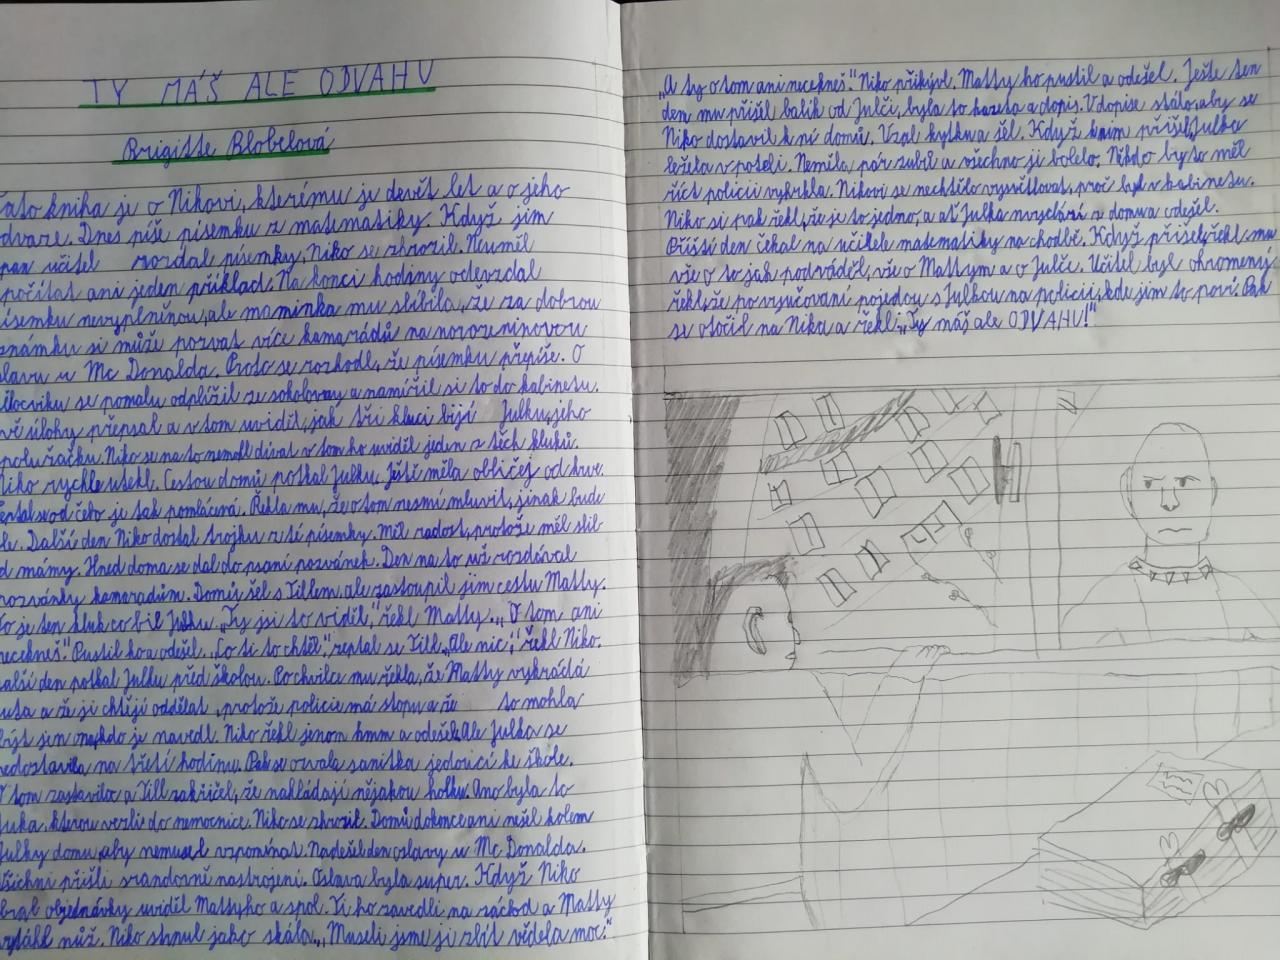 TY MÁŠ ALE ODVAHU
Brigitte Blobelová
tato kniha je o Nikovi, kterému je devět let a o jeho
dvaze. Dnes píše písemku z matematiky. Když jim
pan učitel rozdal písemky, Niko se zhrozil. Neuměl
počítat ani jeden příklad. Na konci hodiny odevzdal
ísemku nevyplněnou, ale maminka mu slíbila, že za dobrou
známku si může pozvat více kamarádů na narozeninovou
slavu u Mc Donalda. Proto se rozhodl, že písemku přepíše. O
ělocviku se pomalu odplížil ze sokolovny a namířil si to do kabinetu.
vě úlohy přepsal a v tom uviděl, jak tři kluci bijí Julku, jeho
spolužačku. Niko se na to nemohl dívat v tom ho uviděl jeden z těch kluků.
Niko rychle utekl. Cestou domů potkal Julku. Ještě měla obličej od krve.
eptal se od čeho je tak pomlácená. Řekla mu, že o tom nesmí mluvit, jinak bude
le. Další den Niko dostal trojku z té písemky. Měl radost, protože měl slib
d mámy. Hned doma se dal do psaní pozvánek. Den na to už rozdával
pozvánky kamarádům. Domů šel s Tillem, ale zastoupil jim cestu Matty.
To je ten kluk co bil Julku. „Ty jsi to viděl,“ řekl Matty. „O tom ani
necekneš.“ Pustil ho a odešel. „Co ti to chtěl,“ zeptal se Till. „Ale nic,“ řekl Niko.
alší den potkal Julku před školou. Po chvilce mu řekla, že Matty vykrádá
uta a že ji chtějí oddělat, protože policie má stopu a že to mohla
být jen ona, kdo je navedl. Niko řekl jenom hmm a odešel. Ale Julka se
nedostavila na třetí hodinu. Pak se ozvala sanitka jedoucí ke škole.
V tom zastavila a Till zakřičel, že nakládají nějakou holku. Ano byla to
Julka, kterou vezli do nemocnice. Niko se zhrozil. Domů dokonce ani nešel kolem
Julky domu, aby nemusel vzpomínat. Nadešel den oslavy u Mc Donalda.
Všichni přišli srandovně nastrojeni. Oslava byla super. Když Niko
bral objednávky uviděl Mattyho a spol. Ti ho zavedli na záchod a Matty
vytáhl nůž. Niko ztuhnul jako skála. „Museli jsme ji zbít věděla moc.“
„A ty o tom ani necekneš.“ Niko přikývl. Matty ho pustil a odešel. Ještě ten
den mu přišel balík od Julči, byla to kazeta a dopis. V dopise stálo, aby se
Niko dostavil k ní domů. Vzal kytku a šel. Když k nim přišel, Julka
ležela v posteli. Neměla pár zubů a všechno ji bolelo. Někdo by to měl
říct policii vyhrkla. Nikovi se nechtělo vysvětlovat, proč byl v kabinetu.
Niko si pak řekl, že je to jedno, a ať Julka z domu odešel.
Příští den čekal na učitele matematiky na chodbě. Když přišel, řekl mu
vše o to jak podváděl, vše o Mattym a o Julče. Učitel byl ohromený
řekl, že po vyučování pojedou s Julkou na policii, kde jim to poví. Pak
se otočil na Nika a řekl: „Ty máš ale ODVAHU!“